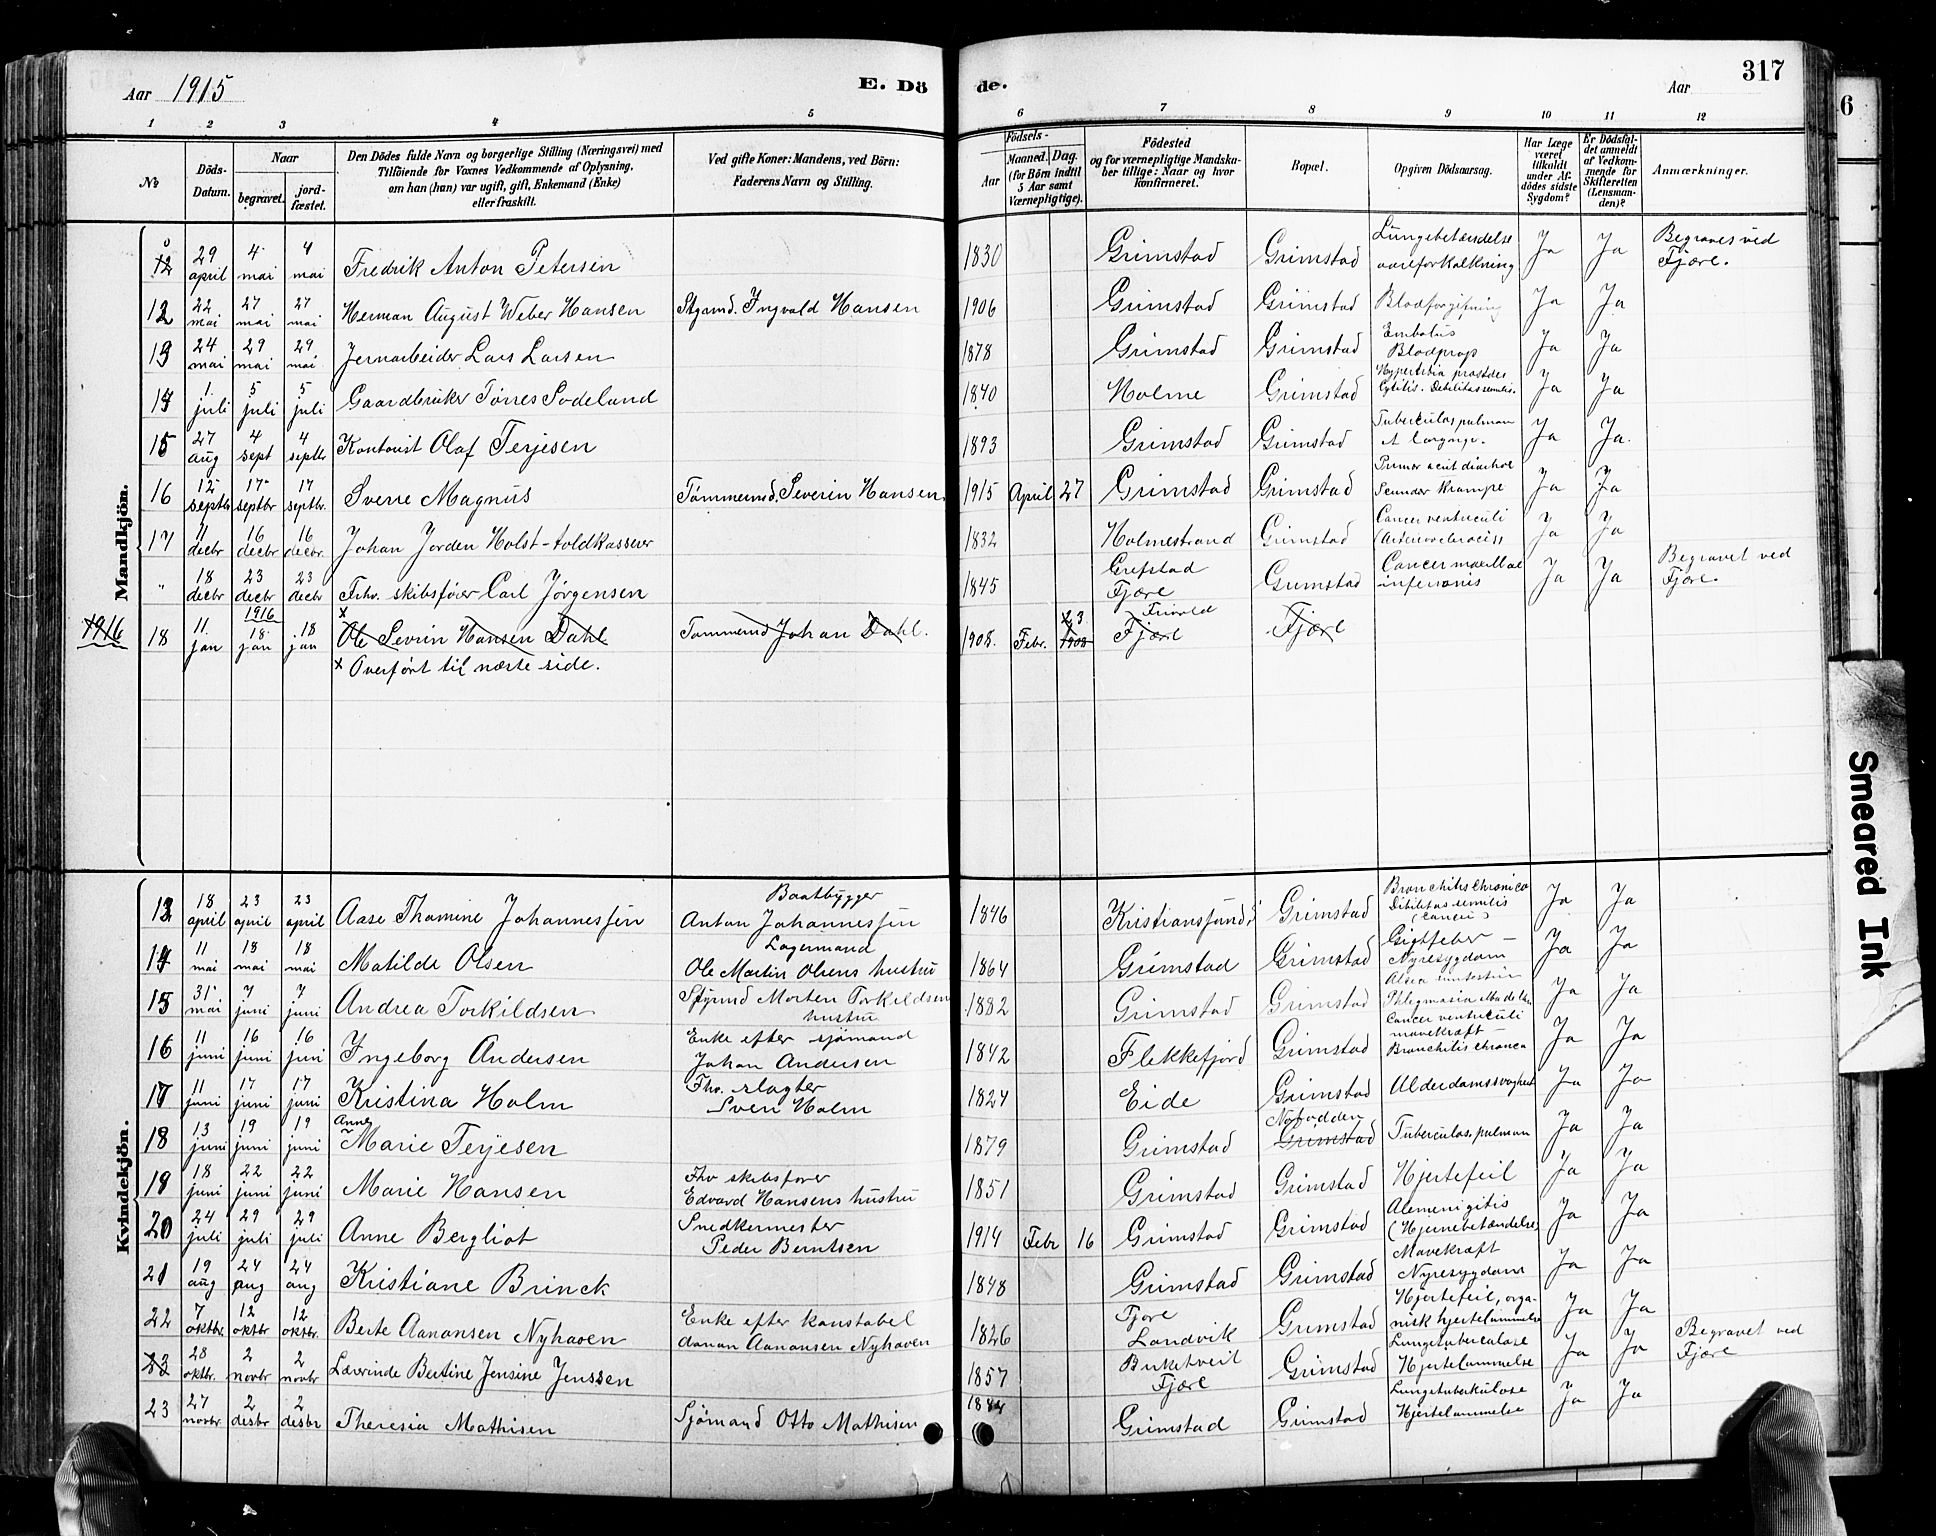 Aar 1915 E. Dö de. Aar 317
1 2 3 4 5 6 7 8 9 10 11 12
No
Döds-Datum.
Naar
begravet.
jord-fæstet.
Den Dödes fulde Navn og borgerlige Stilling (Næringsvei) med
Tilföiende for Voxnes Vedkommende af Oplysning,
om han (hun) var ugift, gift, Enkemand (Enke)
eller fraskilt.
Ved gifte Koner: Mandens, ved Börn:
Faderens Navn og Stilling.
Födsels-
Aar
Maaned. Dag.
(for Börn indtil
5 Aar samt
Værnepligtige).
Födested
og for værnepligtige Mandska-
ber tillige: Naar og hvor
konfirmeret.
Bopæl.
Opgiven Dödsaarsag.
Har Læge
været
tilkaldt
under Af-
dödes sidste
Sygdom?
Er Dödsfal-
det anmeldt
af Vedkom-
mende for
Skifteretten
(Lensman-
den)?
Anmærkninger.
Mandkjön.
12 29 april 4 mai 4 mai Fredrik Anton Petersen 1830 Grimstad Grimstad Lungebetændelse aareforkalkning Ja Ja Begraves ved Fjære.
12 22 mai 27 mai 27 mai Herman August Weber Hansen Styrmd. Ingvald Hansen 1906 Grimstad Grimstad Blodforgiftning Ja Ja
13 24 mai 29 mai 29 mai Jernarbeider Lars Larsen 1878 Grimstad Grimstad Embolus Blodprop Ja Ja
14 1. juli 5 juli 5 juli Gaardbruker Tönnes Sodeland 1840 Holme Grimstad Cytitis. Debilitas senilis. Ja Ja
15 27 aug 4 sept 4 septbr Kontorist Olaf Terjesen 1893 Grimstad Grimstad Tuberculos pulmon Ja Ja.
16 12 septbr 17 septbr 17 septbr. Sverre Magnus Tömmermd. Severin Hansen. 1915 April 27 Grimstad Grimstad Primær acut diarhoe Krampe Ja Ja
17 11 decbr 16 decbr 16 decbr. Johan Jorden Holst - toldkasserer 1832 Holmestrand Grimstad Cancer ventriculi Ja Ja
" 18 decbr 23 decbr 23 decbr Frhv. skibsfører Carl Jørgensen 1845 Grefstad Fjære Grimstad Cancer maxillae inferioris Ja Ja Begravet ved Fjære.
1916 18 11. jan 1916 18 jan 18 jan x Ole Sevrin Hansen Dahl Tømmermd Johan Dahl. 1908. Febr. 23 1908 Fjære Fjære
x Overført til næste side.
Kvindekjön.
13 18 april 23 april 23 april Aase Thomine Johannessen Baatbygger Anton Johannessen 1846 Kristianssund Grimstad Bronchitis chronica Debilitas senilis Ja Ja
14 11 mai 18 mai 18 mai Matilde Olsen Lagermand Ole Martin Olsens hustru 1864 Grimstad Grimstad Gigtfeber - Nyresygdom Ja Ja
15 31 mai 7 juni 7 juni Andrea Torkildsen Styrmd Morten Torkildsen hustru 1882 Grimstad Grimstad Phlegmasia alba Ja Ja
16 11 juni 16 juni 16 juni Ingeborg Andersen Enke efter sjømand Johan Andersen 1842 Flekkefjord Grimstad Cancer ventriculi mavekræft - Bronchitis chronca Ja Ja
17 11 juni 17 juni 17 juni Kristina Holm Fhv. slagter Sven Holm 1824 Eide Grimstad Alderdomssvaghet Ja Ja
18 13 juni 19 juni 19 juni Anne Marie Terjesen 1879 Grimstad Notodden Grimstad Tuberculos. pulmon Ja Ja
19 18 juni 22 juni 22 juni Marie Hansen Fhv skibsfører Edvard Hansens hustru 1851 Grimstad Grimstad Hjertefeil Ja Ja
20 24 juli 29 juli 29 juli Anne Bergliot Snedkermester Peder Berntsen 1914 Febr 16 Grimstad Grimstad (Hjernebetændelse) Ja Ja
21 19 aug 24 aug 24 aug Kristiane Brinck 1848 Grimstad Grimstad Mavekræft Nyresygdom Ja Ja
22 7 oktbr. 12 oktbr 12 oktbr. Berte Aanonsen Nyhaven Enke efter konstabel Aanon Aanonsen Nyhaven 1826 Fjære Landvik Grimstad Hjertefeil, organisk hjertelammelse Ja Ja
23 28 oktbr. 2 novbr 2 novbr Laverinde Bertine Jensine Jenssen 1857 Birketveit Fjære Grimstad Lungetuberculose Hjertelammelse Ja Ja Begravet ved Fjære
23 27 novbr 2 desbr 2 desbr Theresia Mathisen Sjømand Otto Mathisen Grimstad Grimstad Lungetuberkulose Hjertelammelse Ja Ja
6
Smeared Ink